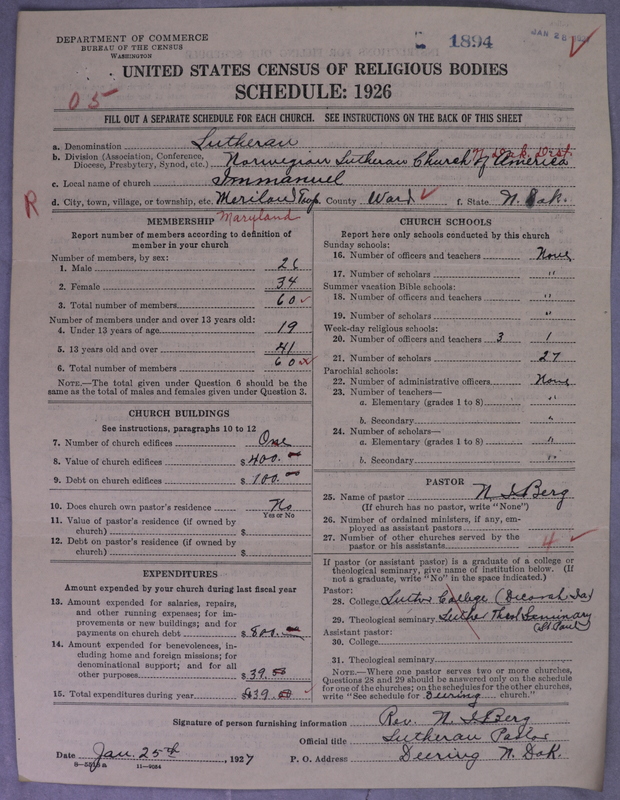 DEPARTMENT OF COMMERCE
BUREAU OF THE CENSUS
WASHINGTON
1894
JAN 28
UNITED STATES CENSUS OF RELIGIOUS BODIES
SCHEDULE: 1926
05
FILL OUT A SEPARATE SCHEDULE FOR EACH CHURCH. SEE INSTRUCTIONS ON THE BACK OF THIS SHEET
a. Denomination Lutheran
N. Dak. Dist.
b. Division (Association, Conference, Diocese, Presbytery, Synod, etc.) Norwegian Lutheran Church of America
c. Local name of church Immanuel
R
d. City, town, village, or township, etc. Twp. County Ward f. State N. Dak.
Maryland
MEMBERSHIP
Report number of members according to definition of
member in your church
Number of members, by sex:
1. Male 26
2. Female 34
3. Total number of members 60
Number of members under and over 13 years old:
4. Under 13 years of age 19
5. 13 years old and over 41
6. Total number of members 60
NOTE.—The total given under Question 6 should be the
same as the total of males and females given under Question 3.
CHURCH BUILDINGS
See instructions, paragraphs 10 to 12
7. Number of church edifices One
8. Value of church edifices $400.
9. Debt on church edifices $100.
10. Does church own pastor's residence No
Yes or No
11. Value of pastor's residence (if owned by
church) $
12. Debt on pastor's residence (if owned by
church) $
EXPENDITURES
Amount expended by your church during last fiscal year
13. Amount expended for salaries, repairs,
and other running expenses; for im-
provements or new buildings; and for
payments on church debt $800.
14. Amount expended for benevolences, in-
cluding home and foreign missions; for
denominational support; and for all
other purposes $39.
15. Total expenditures during year $839.
CHURCH SCHOOLS
Report here only schools conducted by this church
Sunday schools:
16. Number of officers and teachers None
17. Number of scholars "
Summer vacation Bible schools:
18. Number of officers and teachers "
19. Number of scholars "
Week-day religious schools:
20. Number of officers and teachers 3 1
21. Number of scholars 27
Parochial schools:
22. Number of administrative officers None
23. Number of teachers—
a. Elementary (grades 1 to 8) "
b. Secondary "
24. Number of scholars—
a. Elementary (grades 1 to 8) "
b. Secondary "
PASTOR
25. Name of pastor N. S. Berg
(If church has no pastor, write "None")
26. Number of ordained ministers, if any, em-
ployed as assistant pastors
27. Number of other churches served by the
pastor or his assistants 4
If pastor (or assistant pastor) is a graduate of a college or
theological seminary, give name of institution below. (If
not a graduate, write "No" in the space indicated.)
Pastor:
28. College Luther College (Decorah Ia)
29. Theological seminary Luther Theol Seminary
(St Paul)
Assistant pastor:
30. College
31. Theological seminary
NOTE.—Where one pastor serves two or more churches,
Questions 28 and 29 should be answered only on the schedule
for one of the churches; on the schedules for the other churches,
write "See schedule for Deering church."
Signature of person furnishing information Rev. N. S. Berg
Official title Lutheran Pastor
Date Jan. 25th, 1927 P. O. Address Deering N. Dak.
11—9084